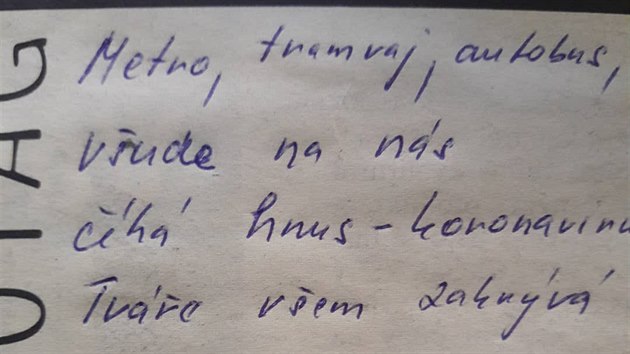 Metro, tramvaj, autobus,
všude na nás
číhá hnus - koronaviru
Tváře všem zakrývá
OTAG